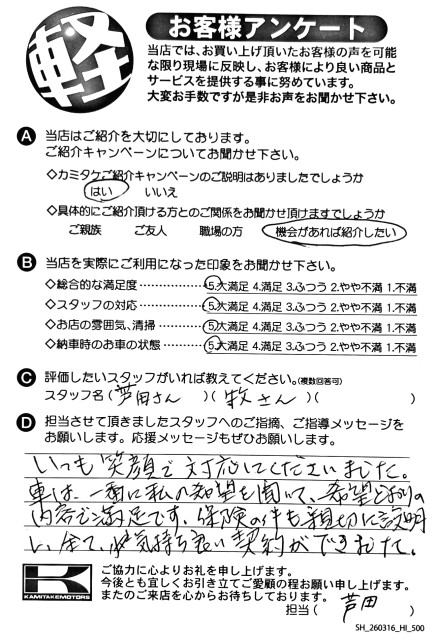 軽
お客様アンケート
当店では、お買い上げ頂いたお客様の声を可能
な限り現場に反映し、お客様により良い商品と
サービスを提供する事に努めています。
大変お手数ですが是非お声をお聞かせ下さい。
A 当店はご紹介を大切にしております。
ご紹介キャンペーンについてお聞かせ下さい。
◇カミタケご紹介キャンペーンのご説明はありましたでしょうか
はい いいえ
◇具体的にご紹介頂ける方とのご関係をお聞かせ頂けますでしょうか
ご親族 ご友人 職場の方 機会があれば紹介したい
B 当店を実際にご利用になった印象をお聞かせ下さい。
◇総合的な満足度 5.大満足 4.満足 3.ふつう 2.やや不満 1.不満
◇スタッフの対応 5.大満足 4.満足 3.ふつう 2.やや不満 1.不満
◇お店の雰囲気、清掃 5.大満足 4.満足 3.ふつう 2.やや不満 1.不満
◇納車時のお車の状態 5.大満足 4.満足 3.ふつう 2.やや不満 1.不満
C 評価したいスタッフがいれば教えてください。(複数回答可)
スタッフ名(芦田さん)(牧さん)( )
D 担当させて頂きましたスタッフへのご指摘、ご指導メッセージを
お願いします。応援メッセージもぜひお願いします。
いつも笑顔で対応してくださいました。
車は、一番に私の希望を聞いて、希望どおりの
内容で満足です。保険の件も親切に説明
し、全て、気持ち良い契約ができました。
K
KAMITAKEMOTORS
ご協力に心よりお礼を申し上げます。
今後とも宜しくお引き立てご愛顧の程お願い申し上げます。
またのご来店を心からお待ちしております。
担当(芦田)
SH_260316_HI_500